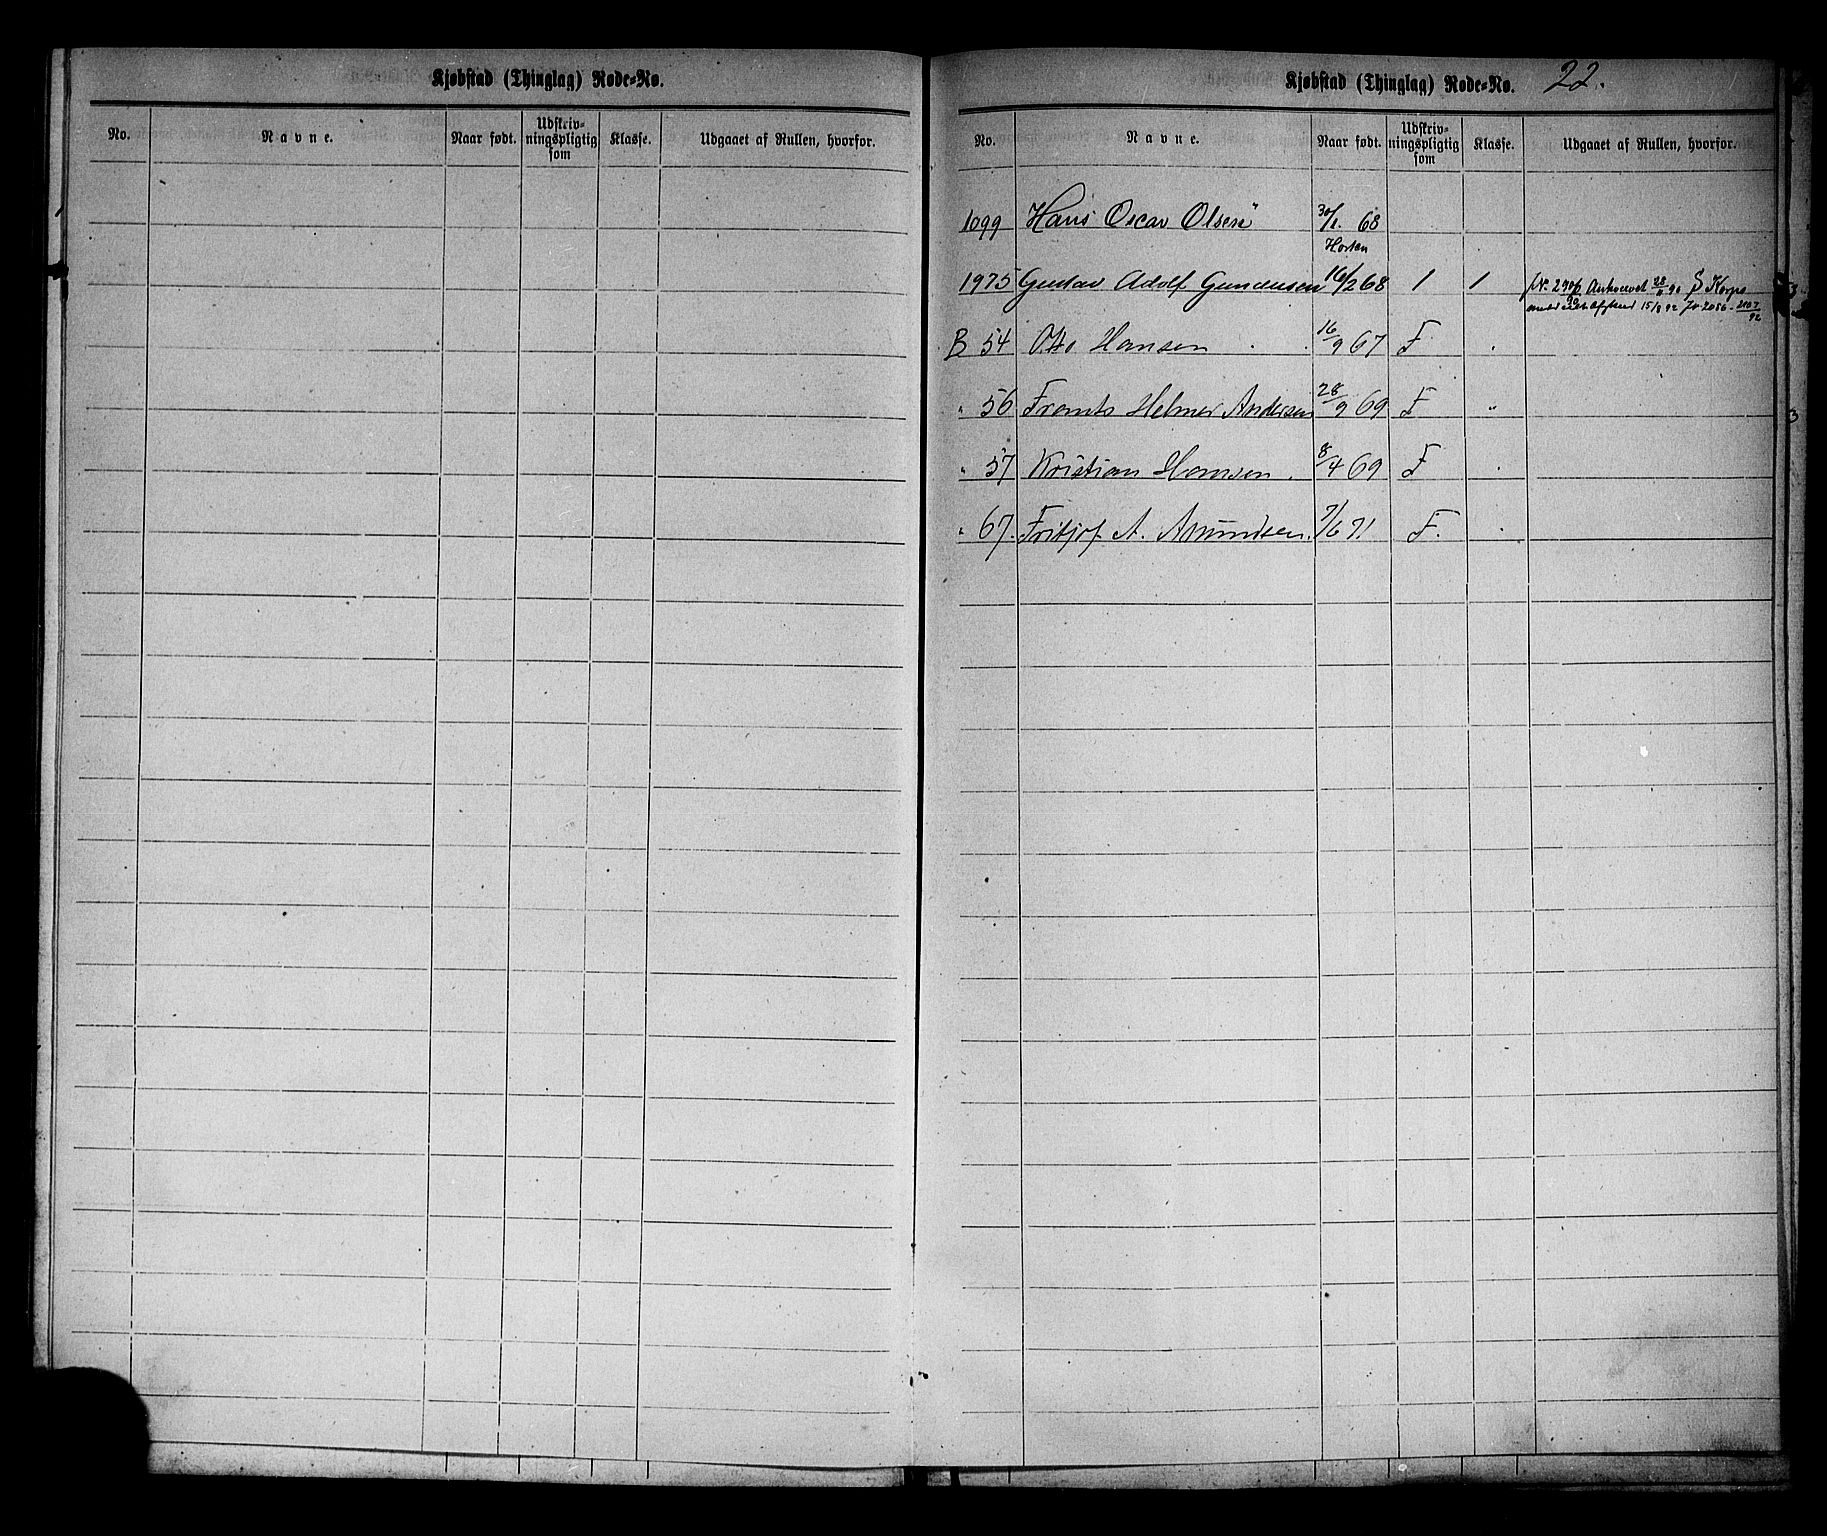 Kjøbstad (Thinglag) Rode-No.
No. Navne. Naar født. Udskriv-ningspligtig som Klasse. Udgaaet af Rullen, hvorfor.
Kjøbstad (Thinglag) Rode-No. 22.
No. Navne. Naar født. Udskriv-ningspligtig som Klasse. Udgaaet af Rullen, hvorfor.
1099 Hans Oscar Olsen 30/1. 68
Horten
1975 Gustav Adolf Gundersen 16/2 68 1 1 28/8 90 S Korps
15/8 92
B 54 Otto Hansen 16/9 67 F
" 56 Frants Helmer Andersen 28/9 69 F "
" 57 Kristian Hansen 8/4 69 F
" 67. Fritjof A. Amundsen. 7/6 71 F.